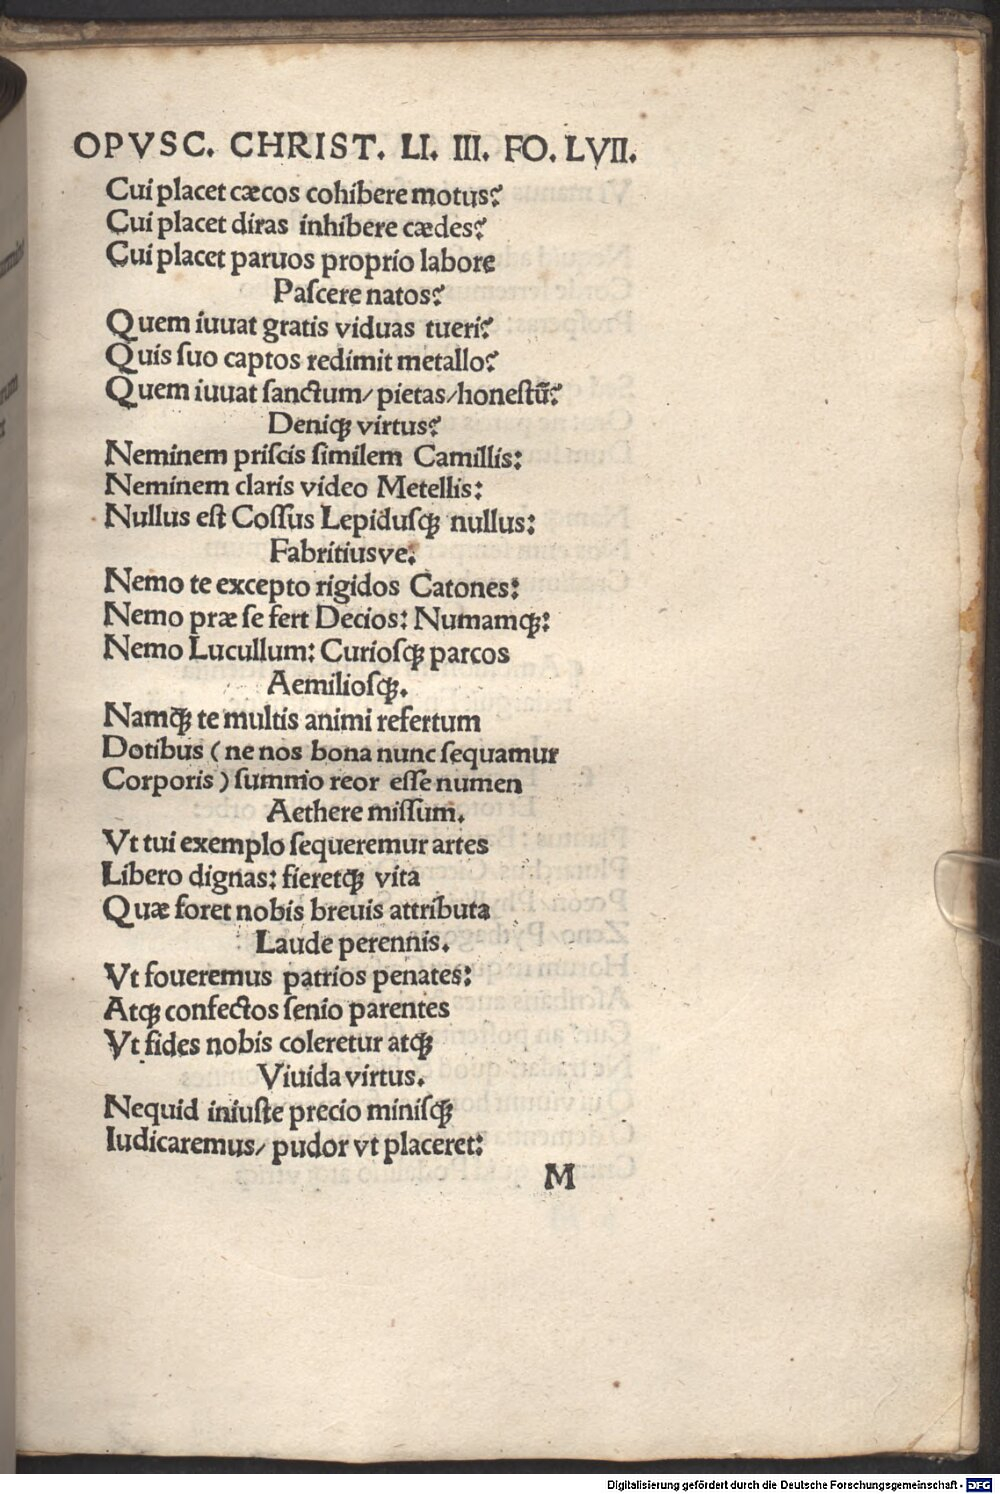 OPVSC. CHRIST. LI. III. FO. LVII.
Cui placet cæcos cohibere motus?
Cui placet diras inhibere cædes?
Cui placet paruos proprio labore
Paſcere natos?
Quem iuuat gratis viduas tueri?
Quis ſuo captos redimit metallo?
Quem iuuat ſanctum/ pietas/ honeſtū?
Deniqꝫ virtus?
Neminem priſcis ſimilem Camillis:
Neminem claris video Metellis:
Nullus eſt Coſſus Lepiduſqꝫ nullus:
Fabritiusve.
Nemo te excepto rigidos Catones:
Nemo præ ſe fert Decios: Numamqꝫ:
Nemo Lucullum: Curioſqꝫ parcos
Aemilioſqꝫ.
Namqꝫ te multis animi refertum
Dotibus ( ne nos bona nunc ſequamur
Corporis ) ſummo reor eſſe numen
Aethere miſſum.
Vt tui exemplo ſequeremur artes
Libero dignas: fieretqꝫ vita
Quæ foret nobis breuis attributa
Laude perennis.
Vt foueremus patrios penates:
Atqꝫ confectos ſenio parentes
Vt fides nobis coleretur atqꝫ
Viuida virtus.
Nequid iniuſte precio miniſqꝫ
Iudicaremus/ pudor vt placeret:
M
Digitalisierung gefördert durch die Deutsche Forschungsgemeinschaft - DFG